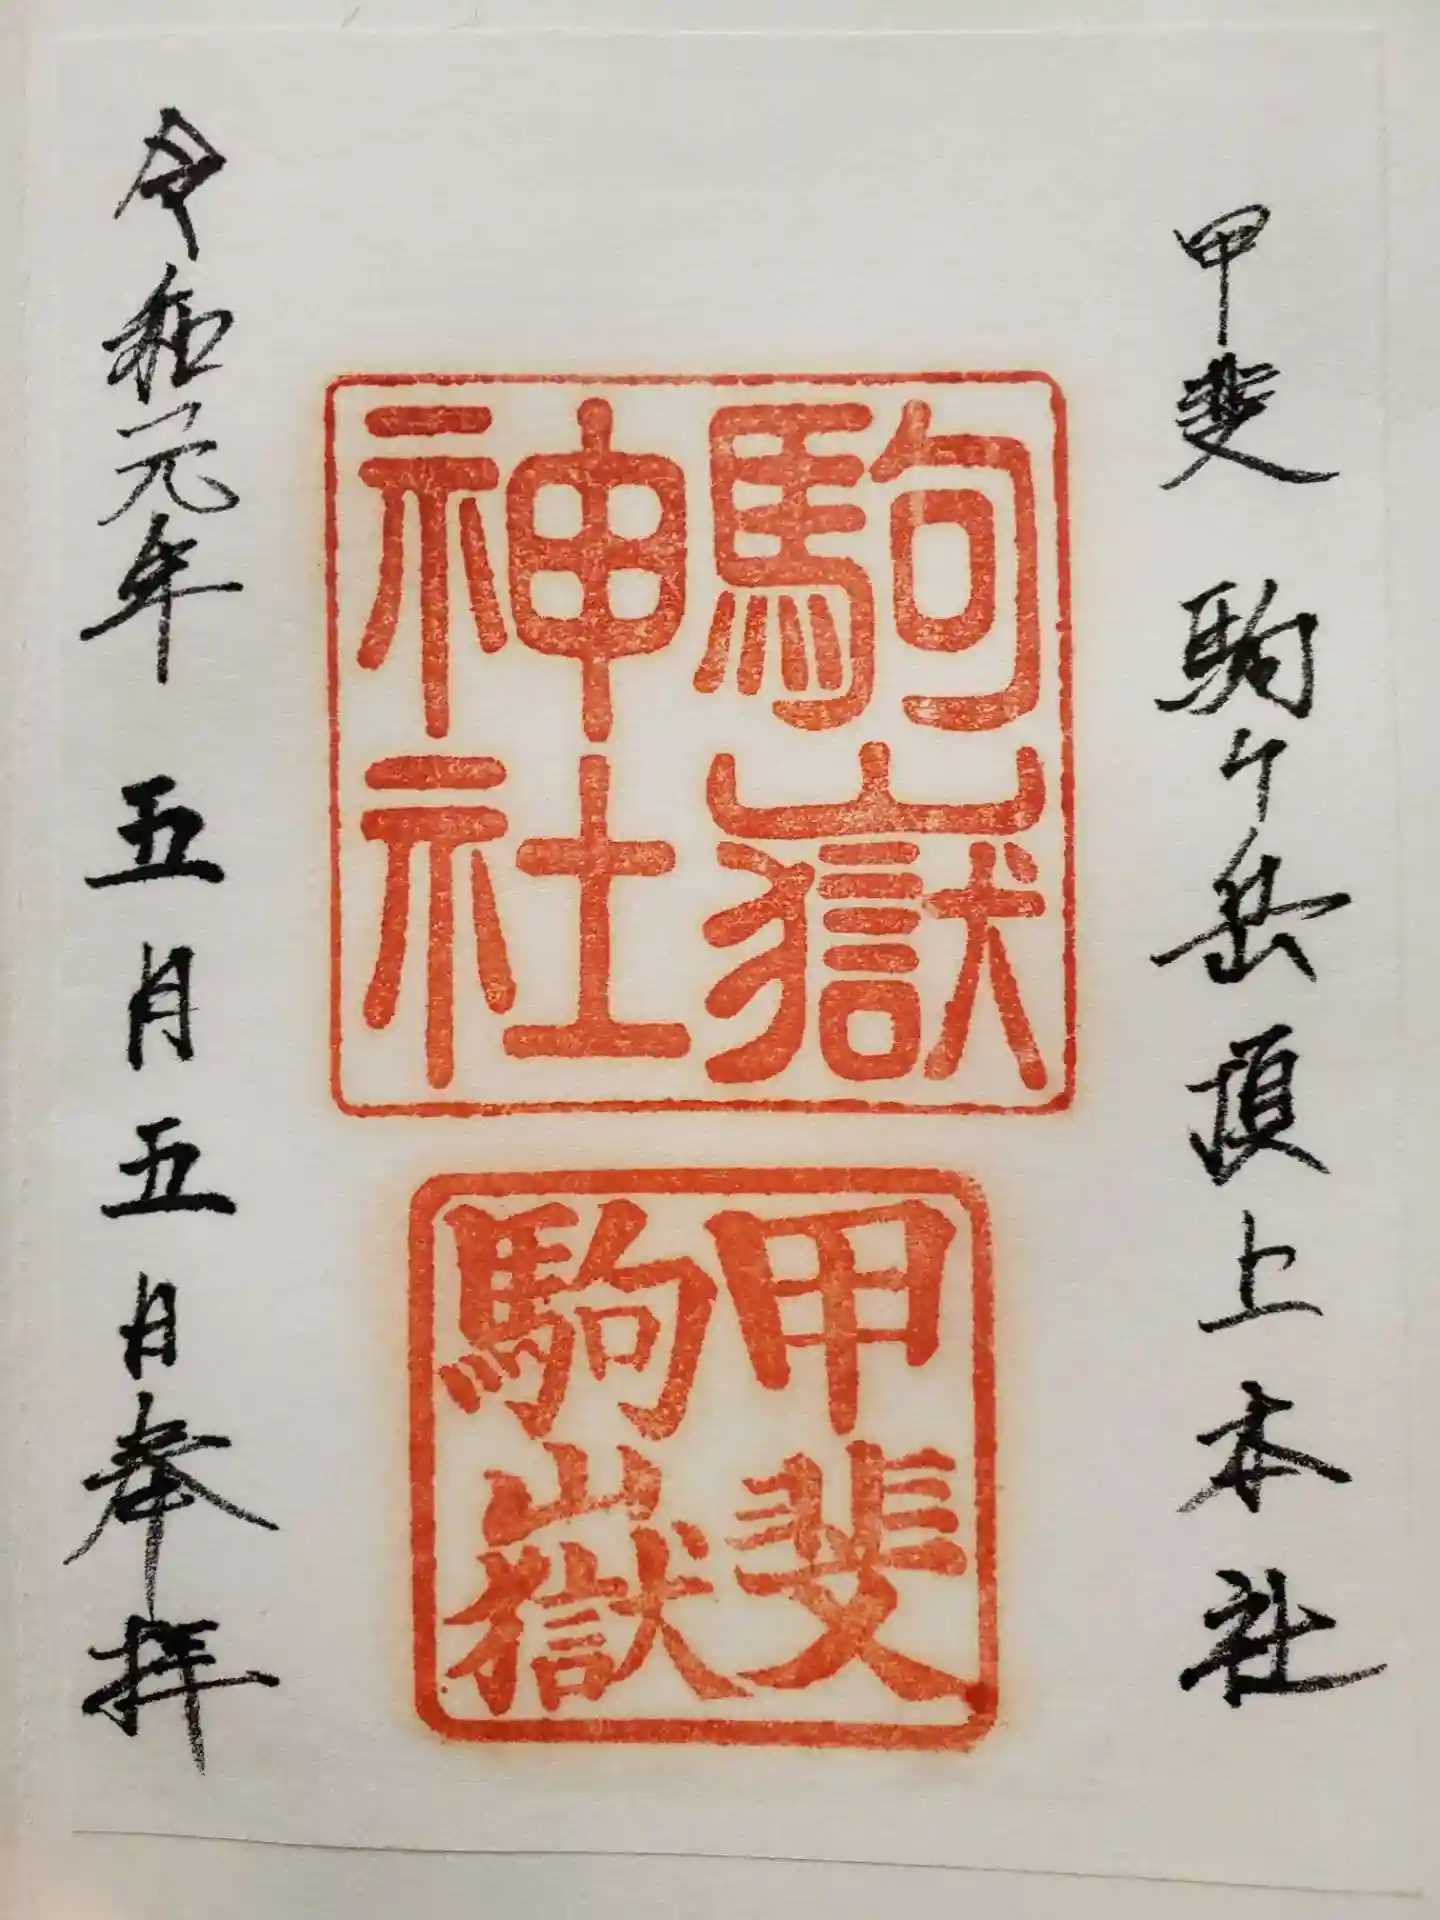 甲斐 駒ケ岳頂上本社
駒嶽
神社
甲斐
駒嶽
令和元年 五月五日奉拝